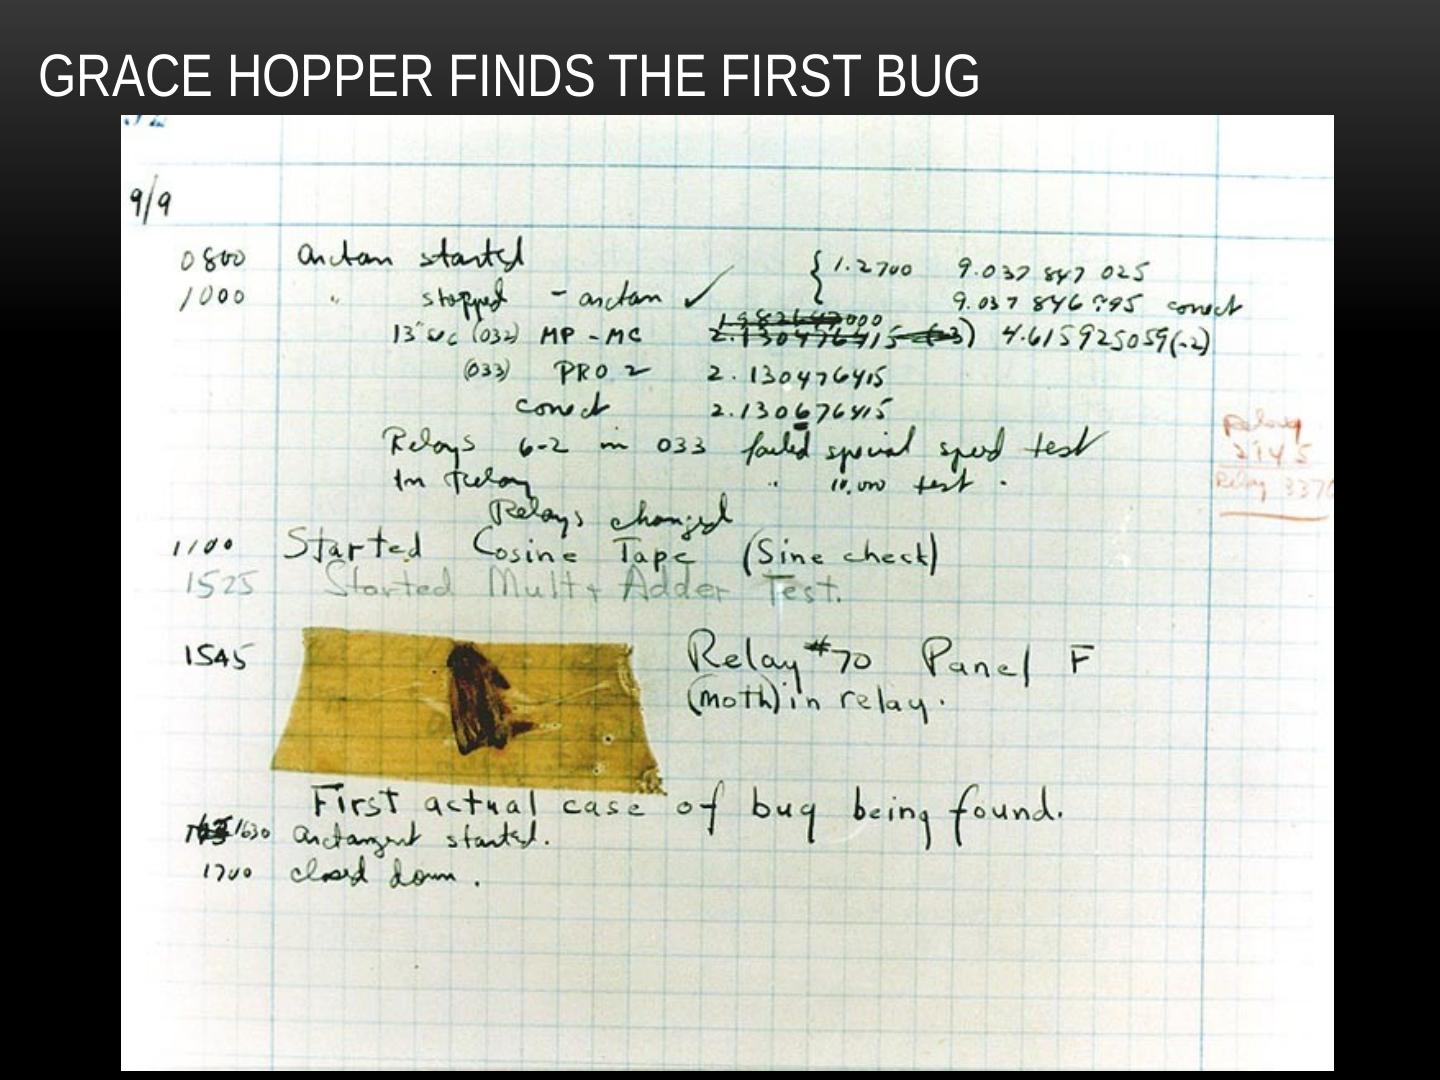 GRACE HOPPER FINDS THE FIRST BUG
9/9
0800 arctan started { 1.2700 9.037 847 025
1000 " stopped - arctan ✓ 9.037 846 995 correct
13" sec (032) MP - MC 2.130476415 (-3) 4.615925059(-2)
(033) PRO 2 2.130476415
correct 2.130676415
Relays 6-2 in 033 failed special speed test
In Relay " 10,000 test.
Relays changed
Relay
2145
Relay 3370
1100 Started Cosine Tape (Sine check)
1525 Started Mult+ Adder Test.
1545 Relay #70 Panel F
(moth) in relay.
First actual case of bug being found.
1630 arctangent started.
1700 closed down.